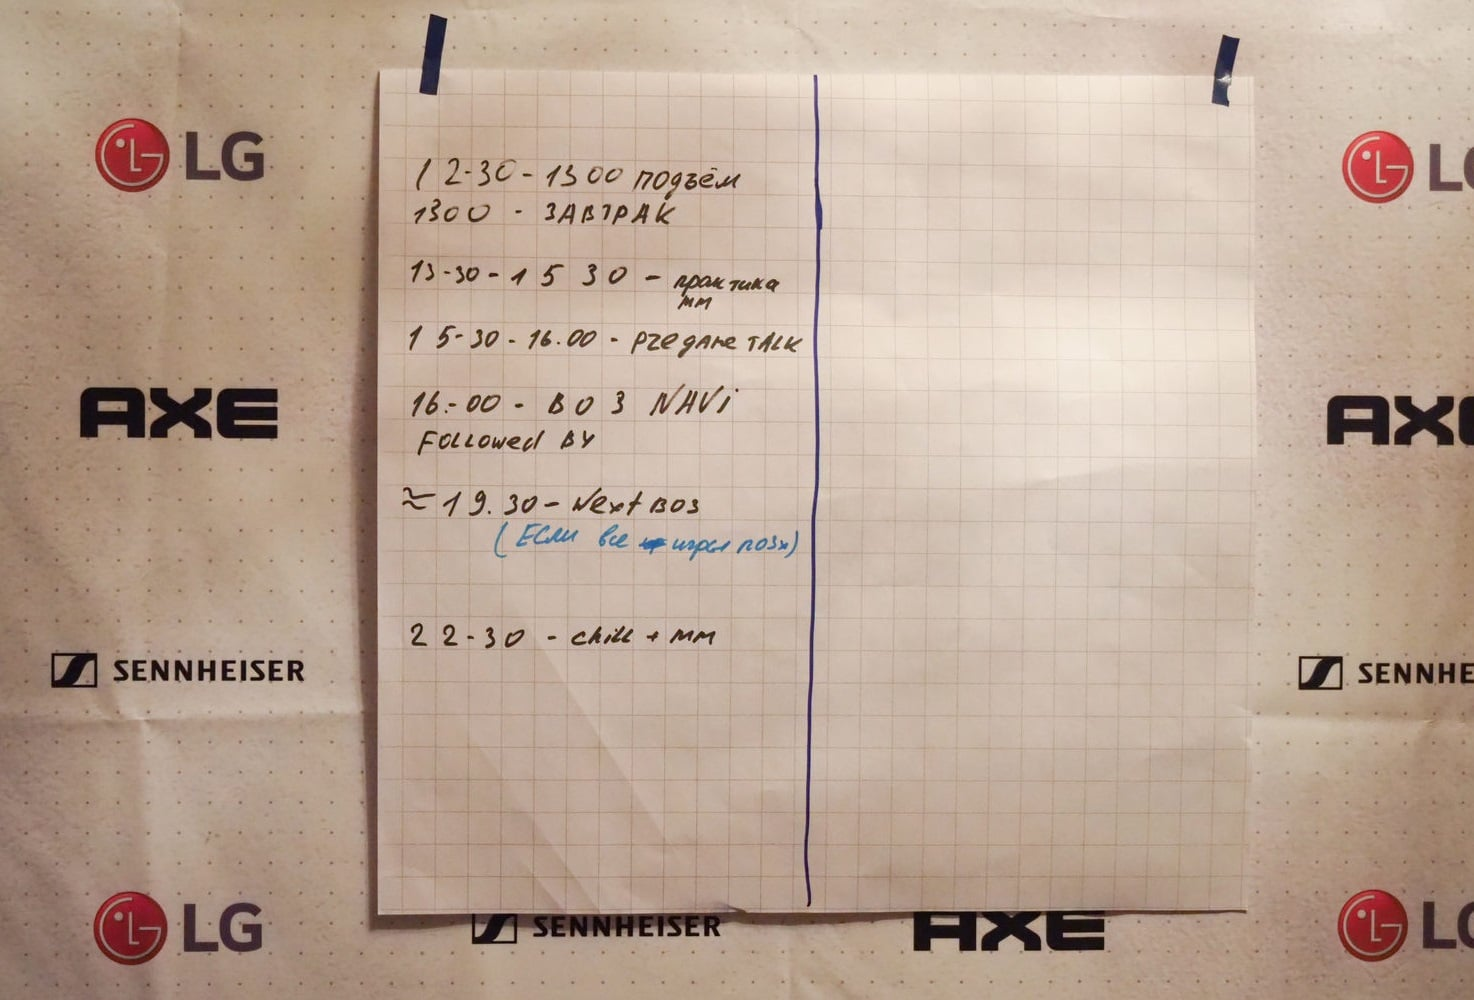 LG
LG
12-30-1300 подъём
1300 - ЗАВТРАК
13-30-1530 - практика
мм
15-30-16.00 - PREGAME TALK
AXE
AXE
16.-00 - BO3 NAVi
FOLLOWED BY
≈19.30- Next BO3
(Если все игры поз)
SENNHEISER
SENNHE
22-30 - chill + мм
LG
SENNHEISER
AXE
LG